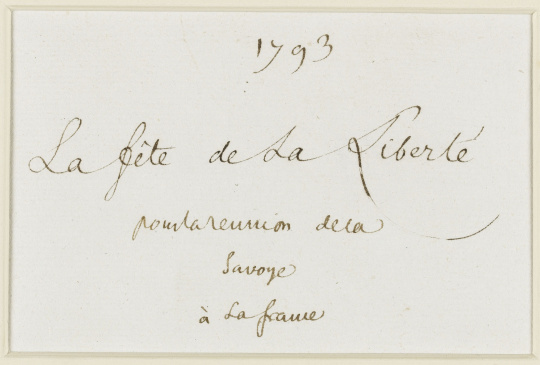 1793
La fête de La Liberté
pour la reunion de la
Savoye
à La france